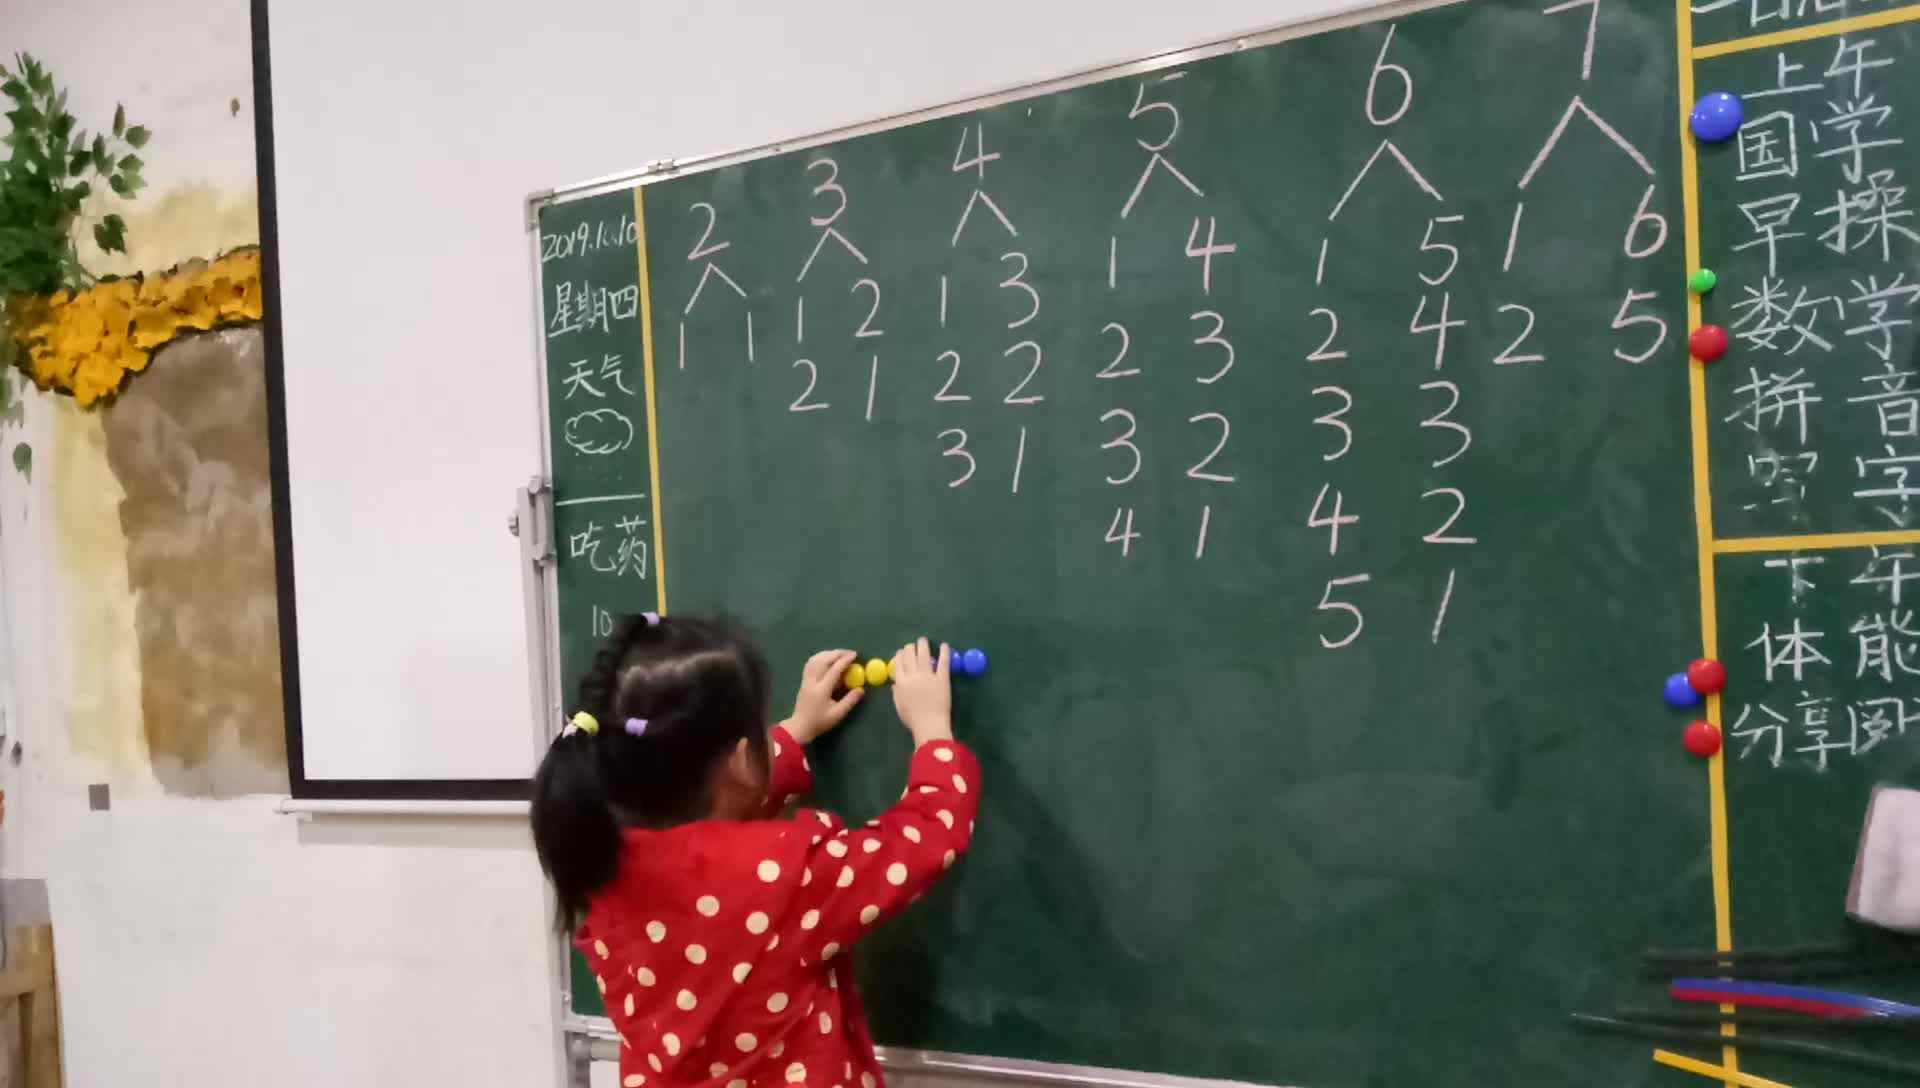 2019.10.10
星期四
天气
吃药
10
2 3 4 5 6 7
1 1
1 2
2 1
1 3
2 2
3 1
1 4
2 3
3 2
4 1
1 5
2 4
3 3
4 2
5 1
1 6
2 5
上午
国学
早操
数学
拼音
写字
下午
体能
分享阅